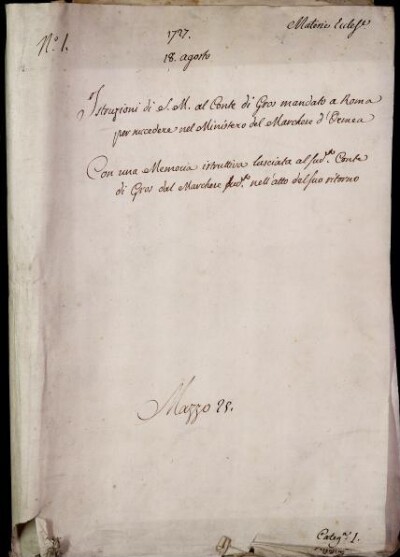 Materie Eccles.e
N.o 1.
1727.
18. agosto
Istruzioni di S. M. al Conte di Gros mandato a Roma
per succedere nel Ministero del Marchese d'Ormea
Con una Memoria istruttiva lasciata al sud.to Conte
di Gros dal Marchese sud.to nell'atto del suo ritorno
Mazzo 25.
Categ.a 1.